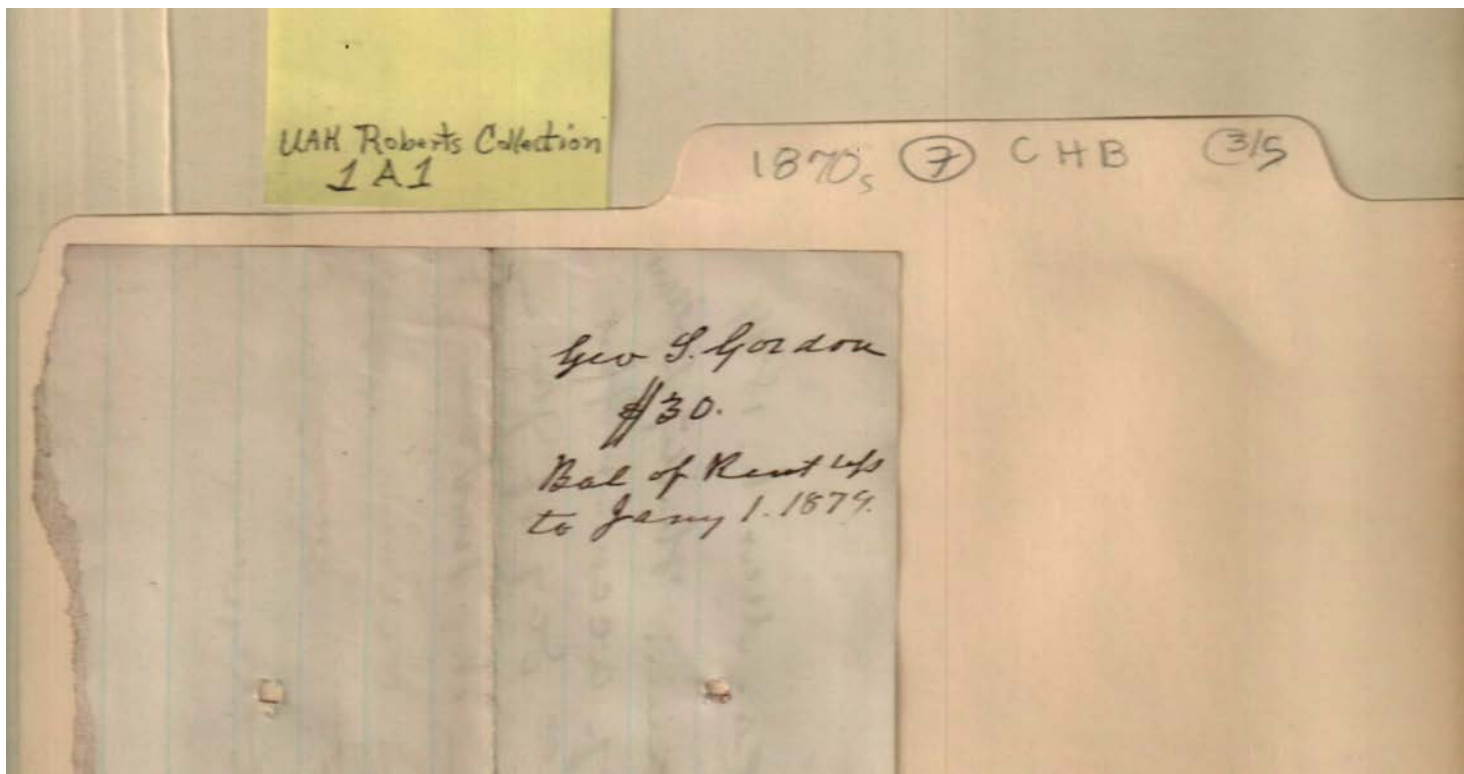 UAH Roberts Collection
1A1
1870s 7 CHB 3/5
Geo S. Gordon
$30.
Bal of Rent up
to Jany 1. 1879.